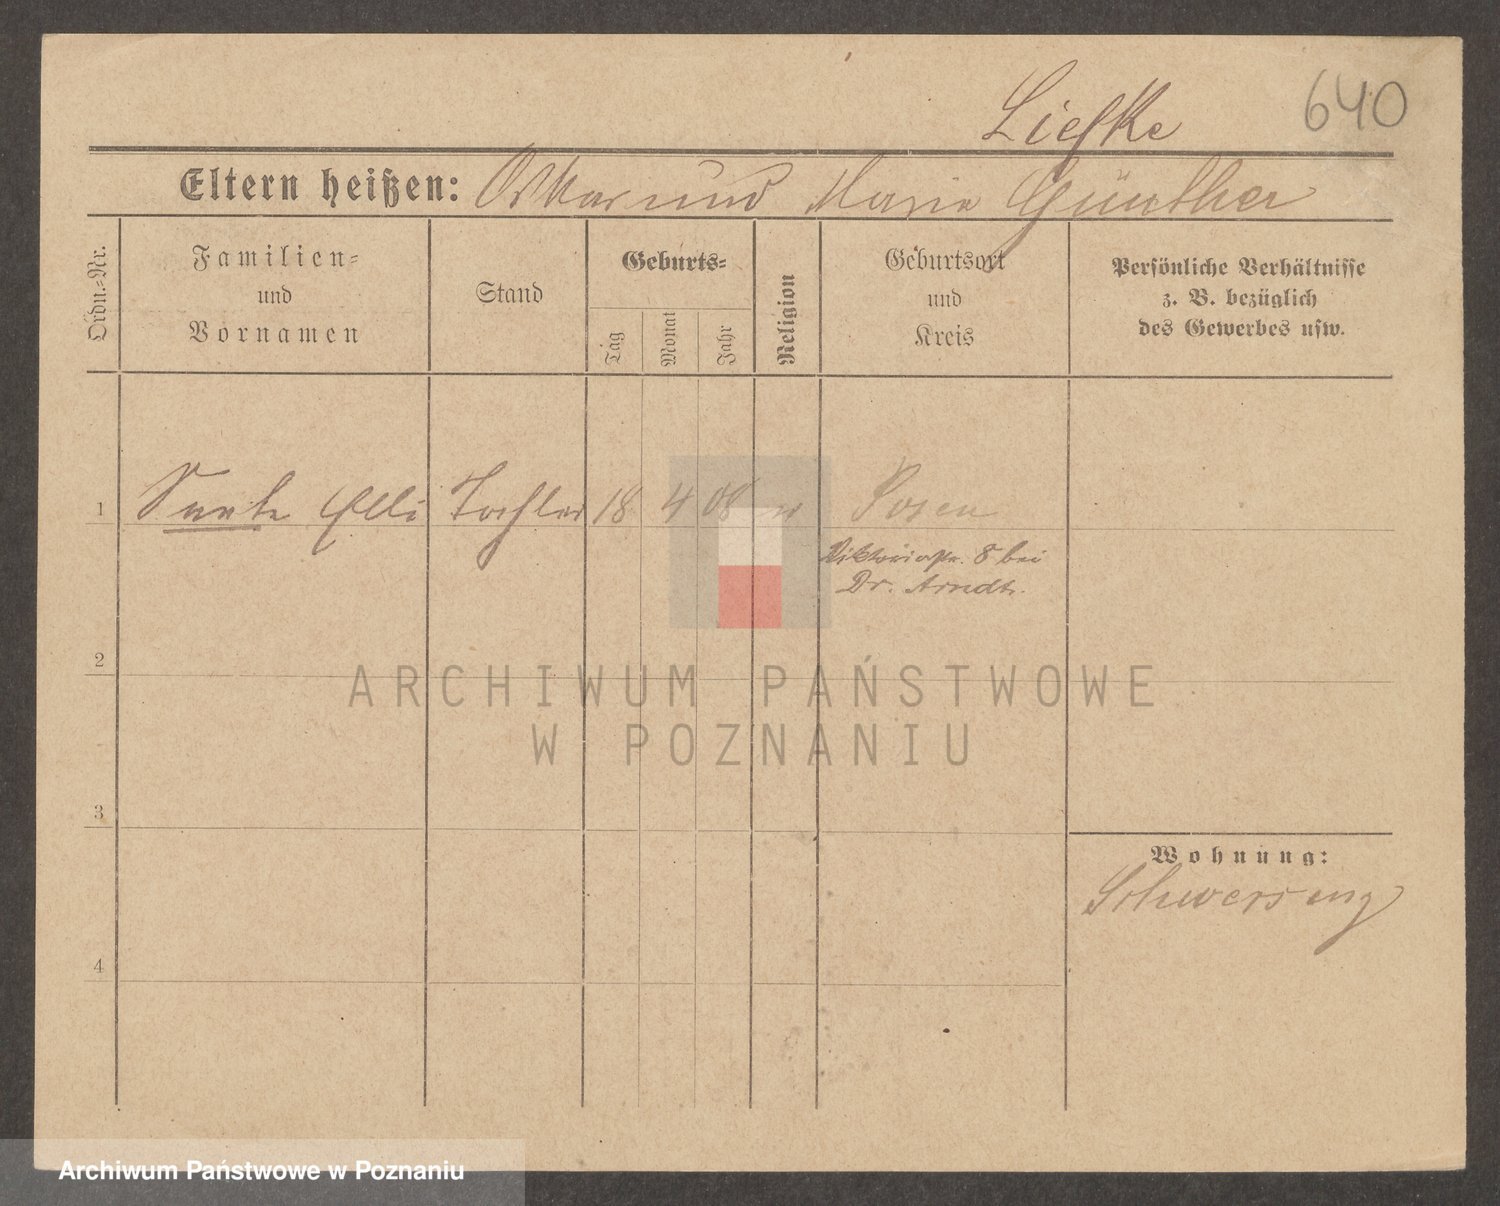 Liefke 640
Eltern heißen: Oskar und Marie Günther
Ordn.-Nr.
Familien-
und
Vornamen
Stand
Geburts-
Tag
Monat
Jahr
Religion
Geburtsort
und
Kreis
Persönliche Verhältnisse
z. B. bezüglich
des Gewerbes usw.
1 Elli Tochter 18 4 08 Posen
Viktoriastr. 8 bei
Dr. Arndt.
2
ARCHIWUM PAŃSTWOWE
W POZNANIU
3
Wohnung:
Schwersenz
4
Archiwum Państwowe w Poznaniu